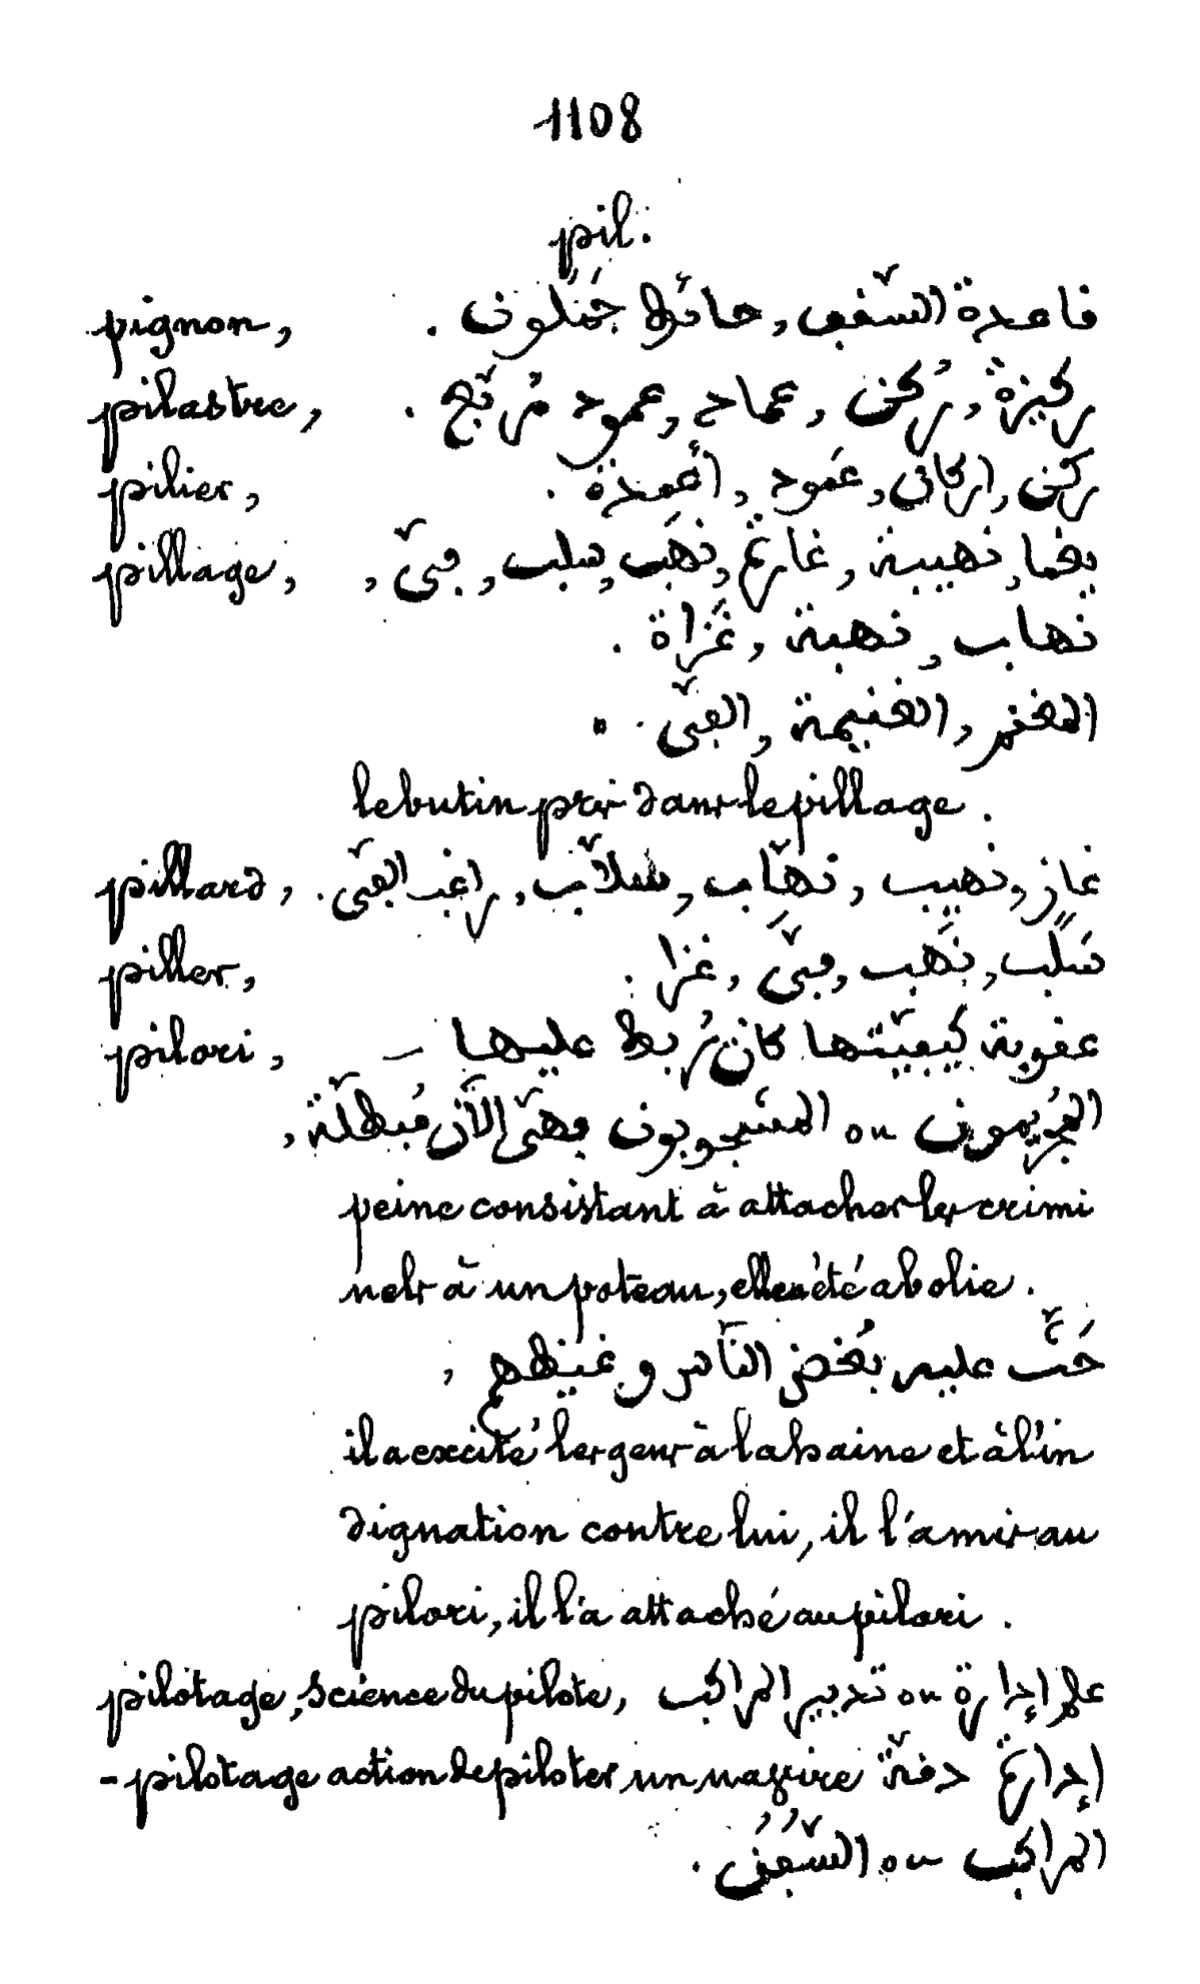 1108
pil.
pignon, قاعدة السّقف, حائط جَمَلون.
pilastre, ركيزة, رُكن, عماد, عمود مُربّع.
pilier, ركن, اركان, عَمود, أعمدة.
pillage, يغما, نهيبة, غارة, نهَب, سلب, فىّ,
نهاب, نهبة, غَزاة.
المغنم, الغنيمة, الفىّ.
le butin pris dans le pillage.
pillard, غاز, نهيب, نهّاب, سلاّب, راغب الفىّ.
piller, سَلَب, نَهَب, فىَّ, غزا.
pilori, عقوبة كيفيّتها كان يُربط عليها –
المُجريمون ou المستَجوبون وهىّ الآن مُبطلّة,
peine consistant à attacher les crimi
nels à un poteau, elle a été abolie.
حَثَّ عليه بُغض النّاس وغيظهم,
il a excité les gens à la haine et à l'in
dignation contre lui, il l'a mis au
pilori, il l'a attaché au pilori.
pilotage, science du pilote, علم إدارة ou تدبير المراكب
- pilotage action de piloter un navire إدارة دفّة
المراكب ou السّفُن.